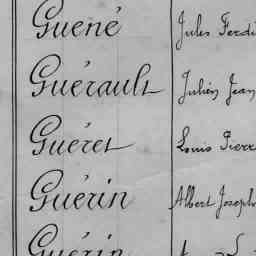 Guené Jules Ferdi
Guérault Julien Jean
Guéret Louis Pierre
Guérin Albert Joseph
Guérin